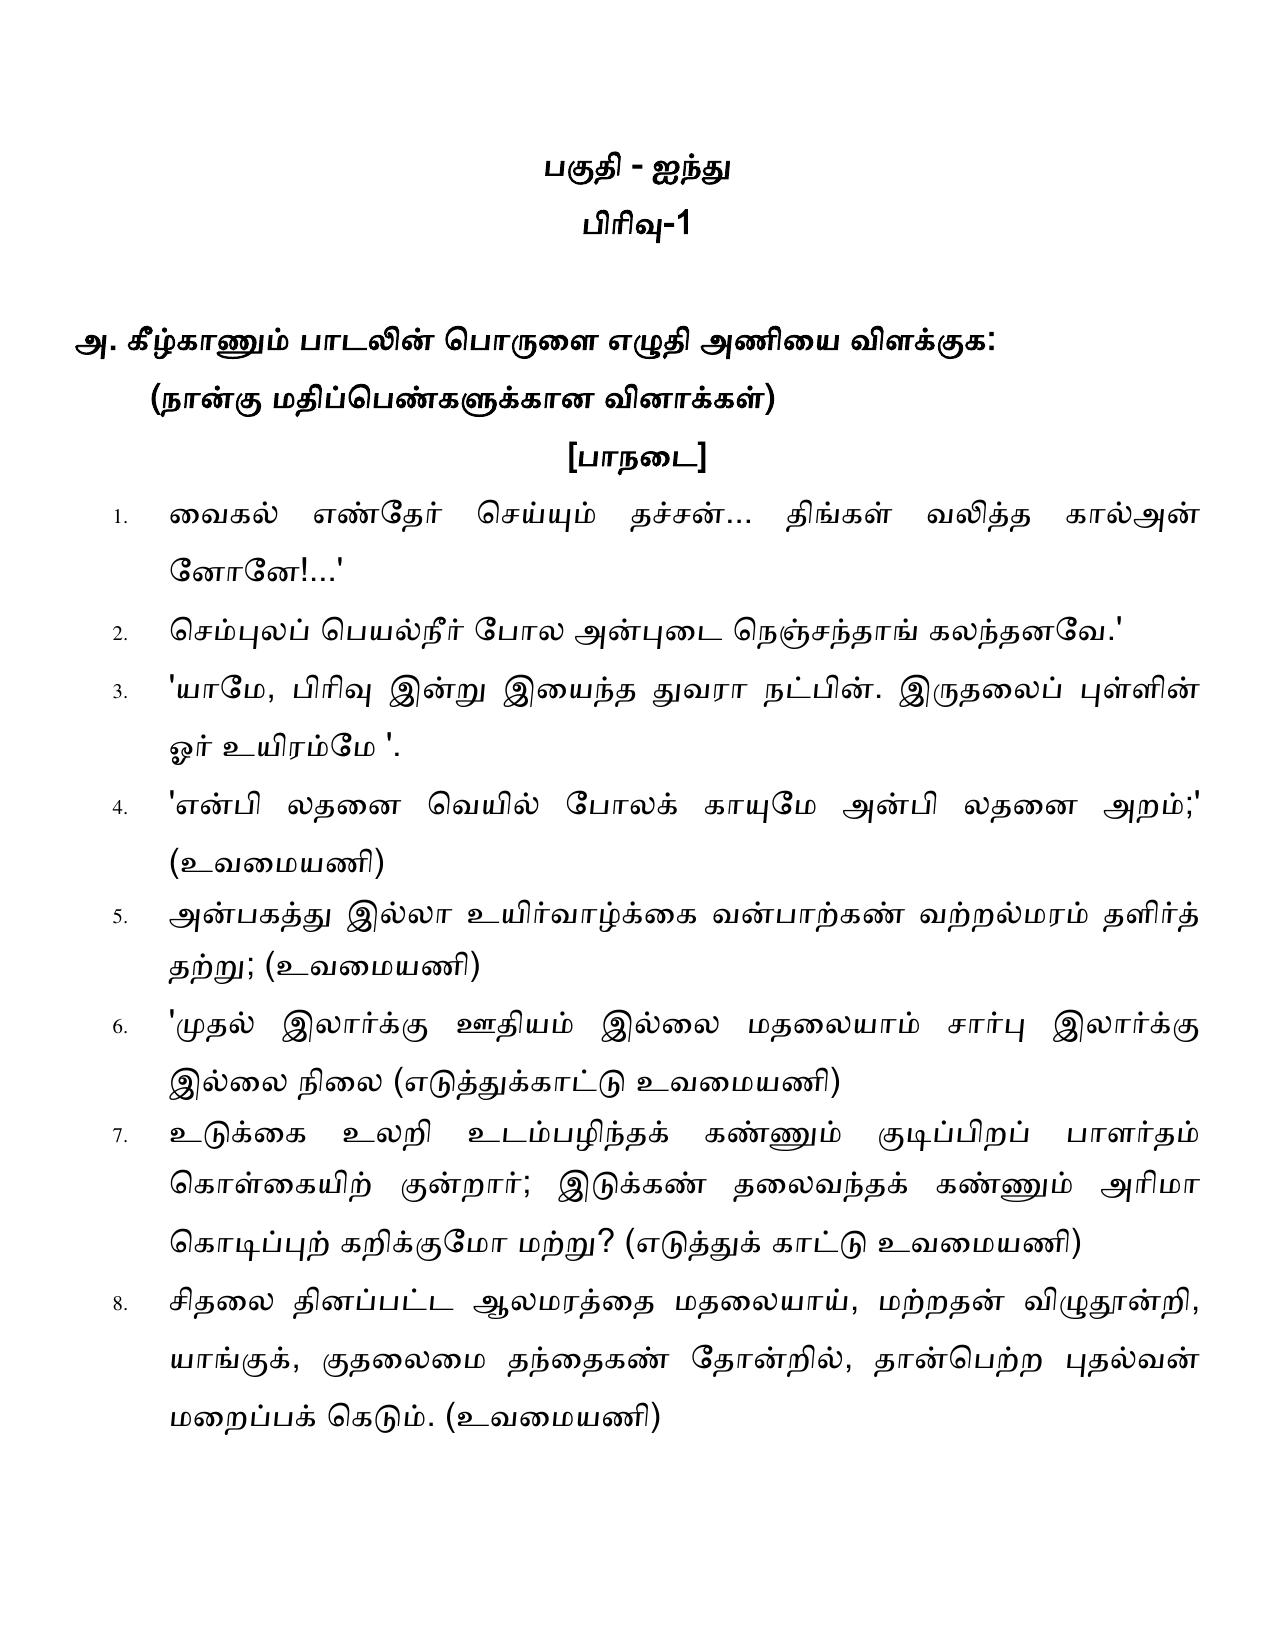 பகுதி - ஐந்து
பிரிவு-1
அ. கீழ்காணும் பாடலின் பொருளை எழுதி அணியை விளக்குக:
(நான்கு மதிப்பெண்களுக்கான வினாக்கள்)
[பாநடை]
1. வைகல் எண்தேர் செய்யும் தச்சன்... திங்கள் வலித்த கால்அன்
னோனே!...'
2. செம்புலப் பெயல்நீர் போல அன்புடை நெஞ்சந்தாங் கலந்தனவே.'
3. 'யாமே, பிரிவு இன்று இயைந்த துவரா நட்பின். இருதலைப் புள்ளின்
ஓர் உயிரம்மே '.
4. 'என்பி லதனை வெயில் போலக் காயுமே அன்பி லதனை அறம்;'
(உவமையணி)
5. அன்பகத்து இல்லா உயிர்வாழ்க்கை வன்பாற்கண் வற்றல்மரம் தளிர்த்
தற்று; (உவமையணி)
6. 'முதல் இலார்க்கு ஊதியம் இல்லை மதலையாம் சார்பு இலார்க்கு
இல்லை நிலை (எடுத்துக்காட்டு உவமையணி)
7. உடுக்கை உலறி உடம்பழிந்தக் கண்ணும் குடிப்பிறப் பாளர்தம்
கொள்கையிற் குன்றார்; இடுக்கண் தலைவந்தக் கண்ணும் அரிமா
கொடிப்புற் கறிக்குமோ மற்று? (எடுத்துக் காட்டு உவமையணி)
8. சிதலை தினப்பட்ட ஆலமரத்தை மதலையாய், மற்றதன் விழுதூன்றி,
யாங்குக், குதலைமை தந்தைகண் தோன்றில், தான்பெற்ற புதல்வன்
மறைப்பக் கெடும். (உவமையணி)